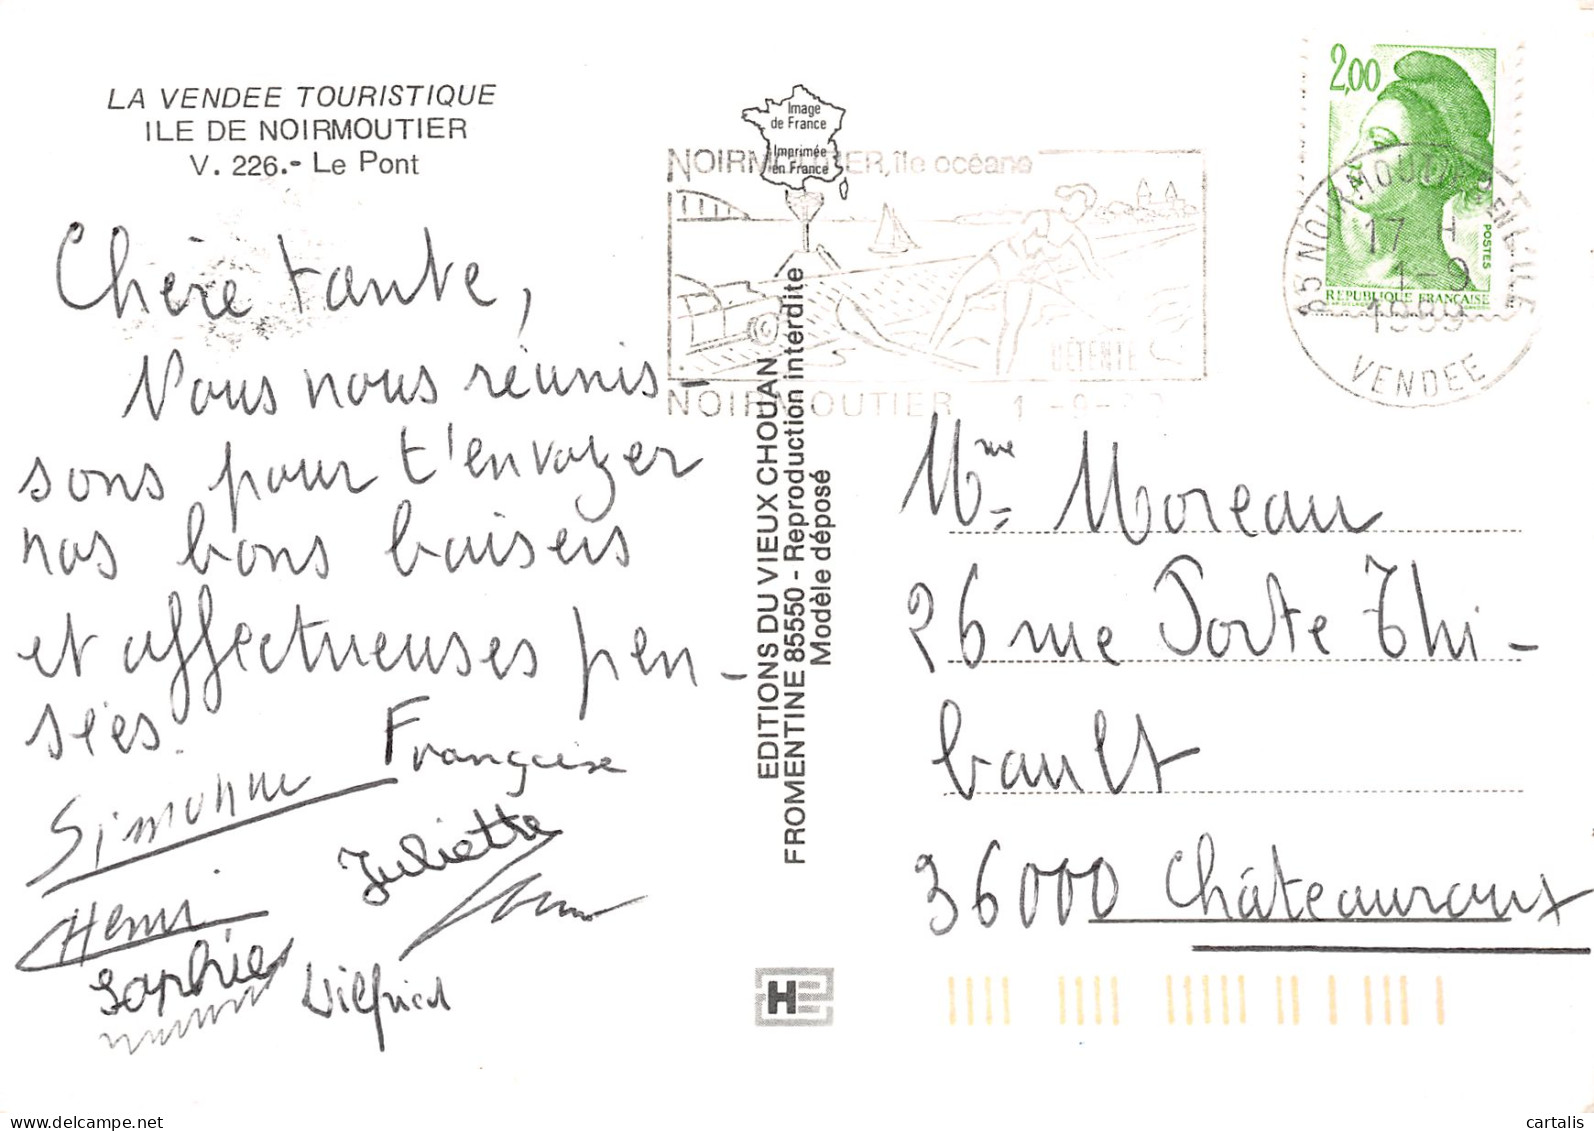 LA VENDEE TOURISTIQUE
ILE DE NOIRMOUTIER
V. 226.- Le Pont
Chère tante,
Nous nous réunis-
sons pour t'envoyer
nos bons baisers
et affectueuses pen-
sées.
Françoise
Simonne
Juliette
Henri
Sophie
Wilfried
Image
de France
Imprimée
en France
NOIRMOUTIER, île océane
DÉTENTE
NOIRMOUTIER 1 -9-
EDITIONS DU VIEUX CHOUAN
FROMENTINE 85550 - Reproduction interdite
Modèle déposé
2,00
POSTES
REPUBLIQUE FRANÇAISE
85 NOIRMOUTIER EN L'ILE
17 H
1-9
1989
VENDEE
Mme Moreau
26 rue Porte Thi-
bault
36000 Châteauroux
H
cartalis